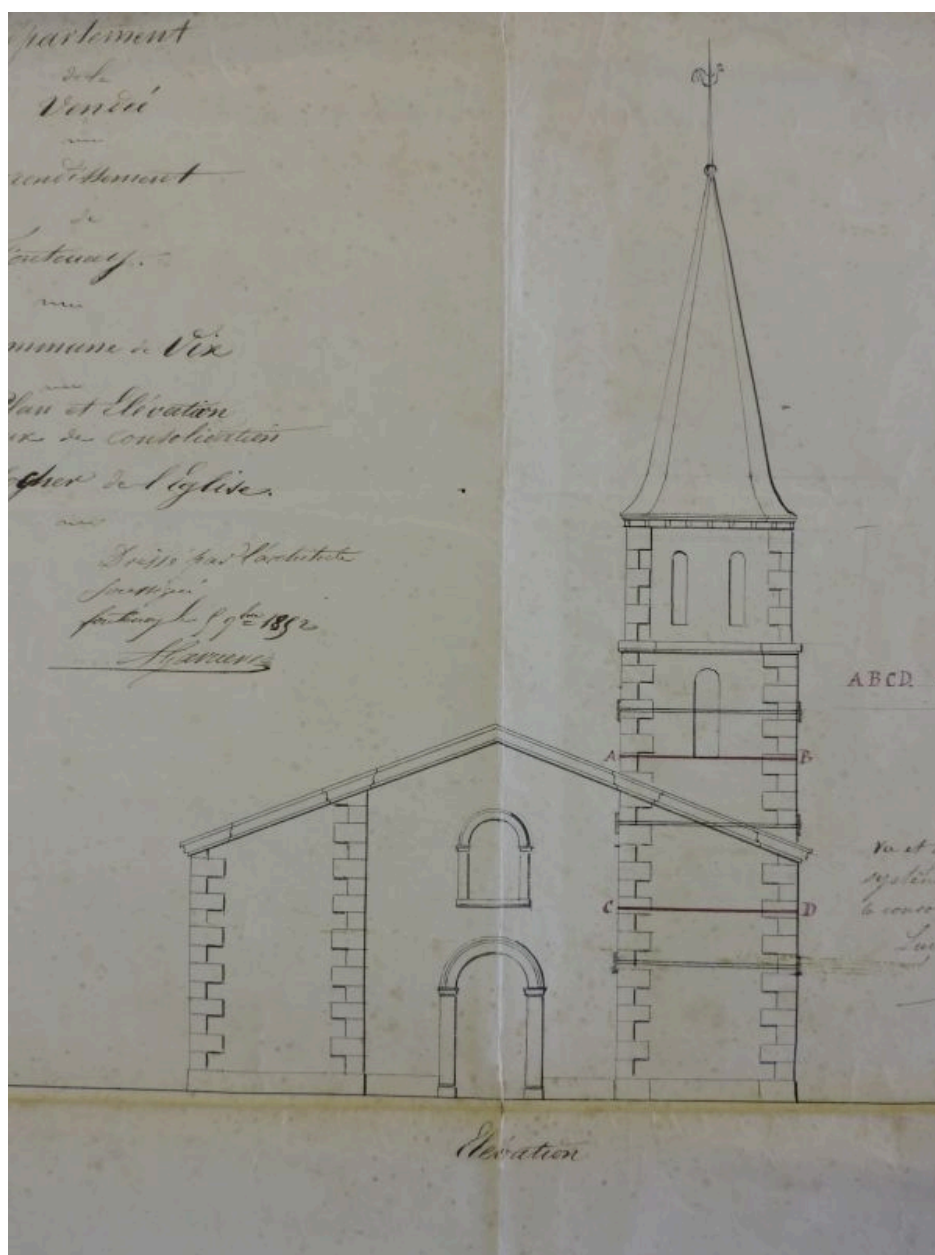 épartement
de la
Vendée
rrondissement
de
Fontenay.
ommune de Vix
Plan et Élévation
ux de consolidation
ocher de l'Eglise.
Dressé par l'architecte
soussigné
fontenay le 5 9bre 1852
ABCD.
A
B
Vu et
systèm
C
D
la conso
Élévation